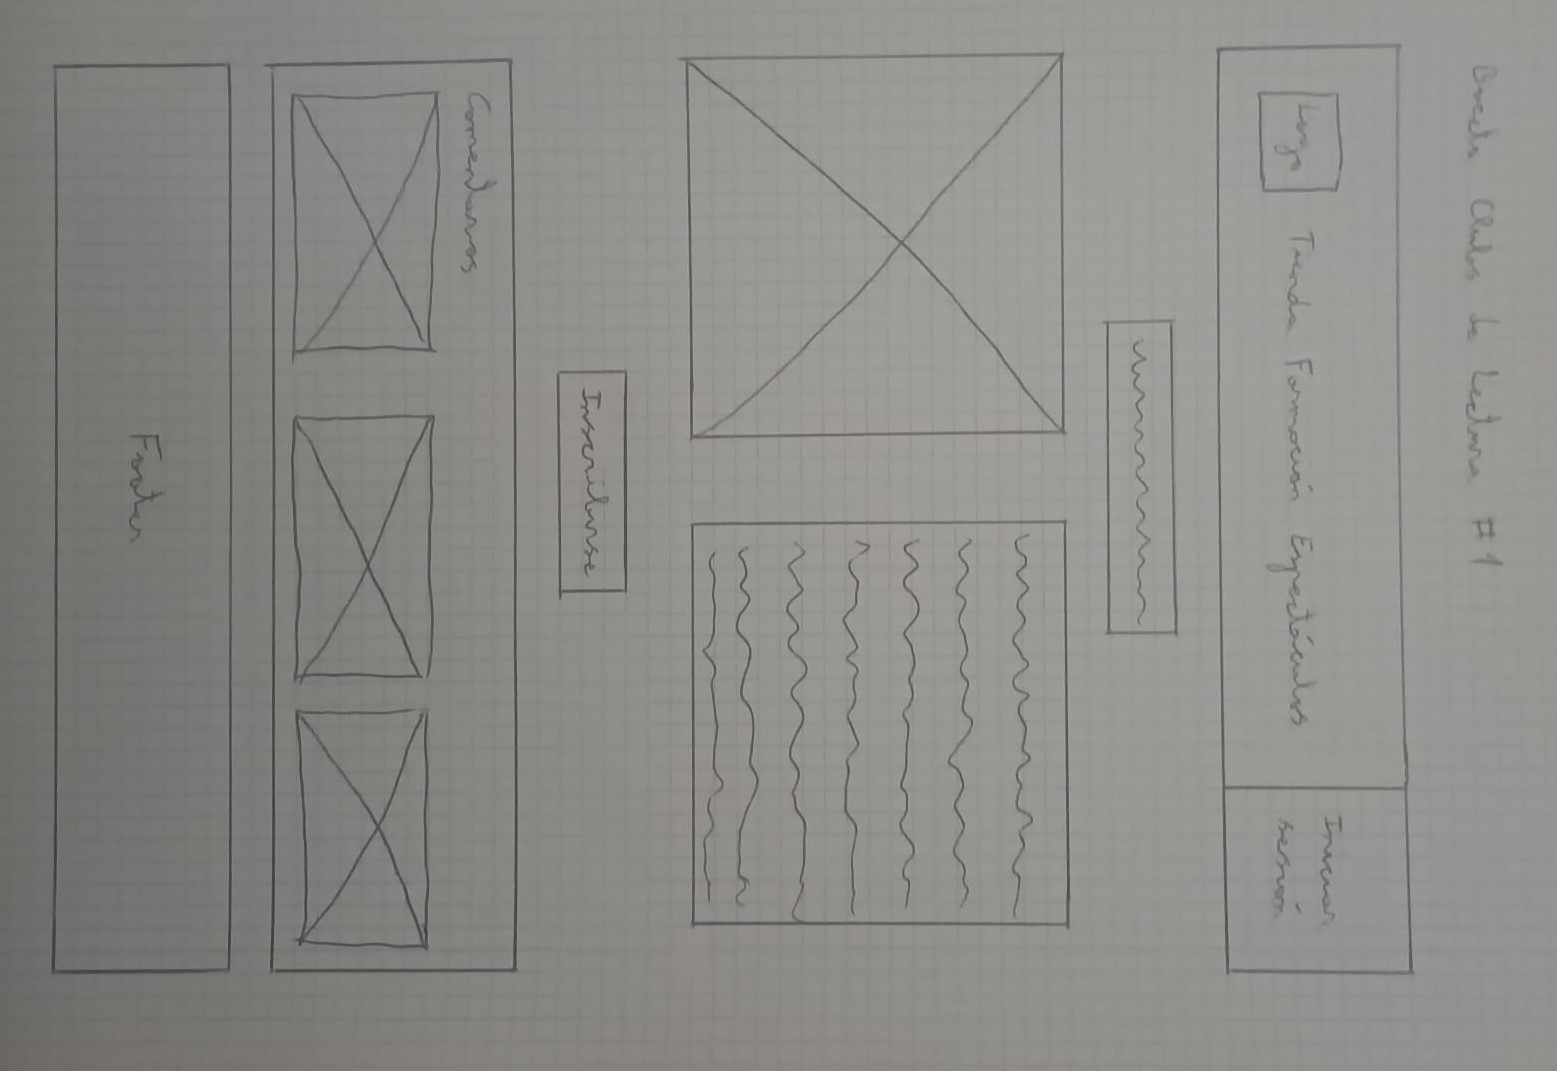 Boceto Clubs de Lectura #1
Logo Tienda Formación Espectáculos
Iniciar
sesión
Inscribirse
Comentarios
Footer